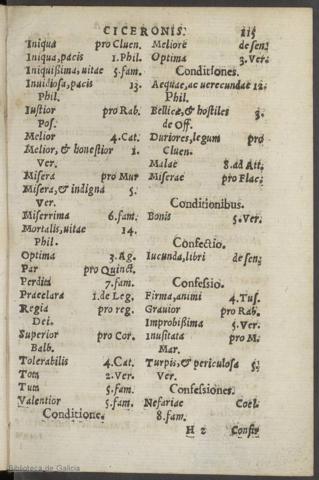 CICERONIS. 115
Iniqua pro Cluen.
Iniqua, pacis 1. Phil.
Iniquißima, uitae 5. fam.
Inuidiosa, pacis 13.
Phil.
Iustior pro Rab.
Pos.
Melior 4. Cat.
Melior, & honestior 1.
Ver.
Misera pro Mur
Misera, & indigna 5.
Ver.
Miserrima 6. fam.
Mortalis, uitae 14.
Phil.
Optima 3. Ag.
Par pro Quinct.
Perdita 7. fam.
Praeclara 1. de Leg.
Regia pro reg.
Dei.
Superior pro Cor.
Balb.
Tolerabilis 4. Cat.
Tota 2. Ver.
Tua 5. fam.
Valentior 5. fam.
Conditione.
Meliore de sen.
Optima 3. Ver.
Conditiones.
Aequae, ac uerecundae 12.
Phil.
Bellicæ, & hostiles 3.
de Off.
Duriores, legum pro
Cluen.
Malae 8. ad Att.
Miserae pro Flac.
Conditionibus.
Bonis 5. Ver.
Confectio.
Iucunda, libri de sen.
Confeßio.
Firma, animi 4. Tus.
Grauior pro Rab.
Improbißima 5. Ver.
Inusitata pro M.
Mar.
Turpis, & periculosa 5.
Ver.
Confeßiones.
Nefariae Coel.
8. fam.
H 2 Confir
Biblioteca de Galicia